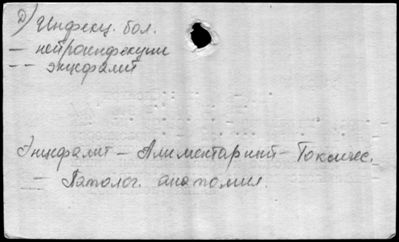 D) Инфекц. бол.
— нейроинфекции
— — энцефалит
Энцефалит — Алиментарный — Токсичес.
— Патолог. анатомия.